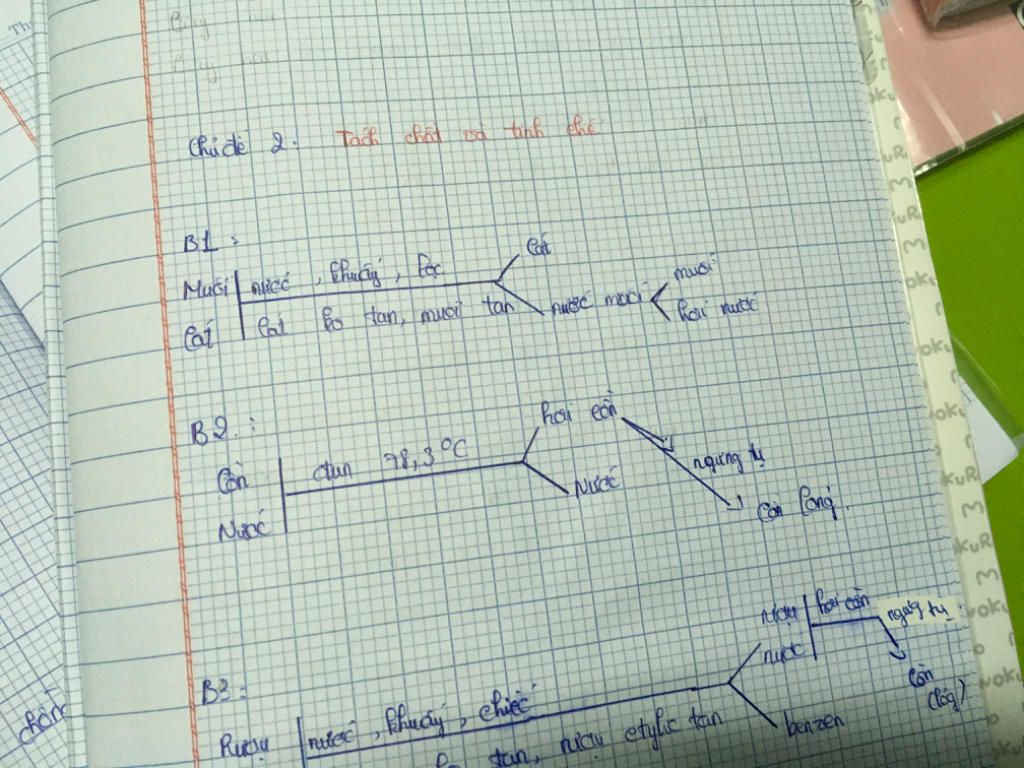 Chủ đề 2: Tách chất và tinh chế
B1:
Muối nước, khuấy, lọc Cát
Cát Cát ko tan, muối tan nước muối muối
hơi nước
B2:
Cồn đun 78,3°C hơi cồn
Nước Nước ngưng tụ
Cồn lỏng.
B3:
Rượu nước, khuấy, chiết rượu hơi cồn ngưng tụ
nước cồn (lỏg)
ko tan, rượu etylic tan benzen